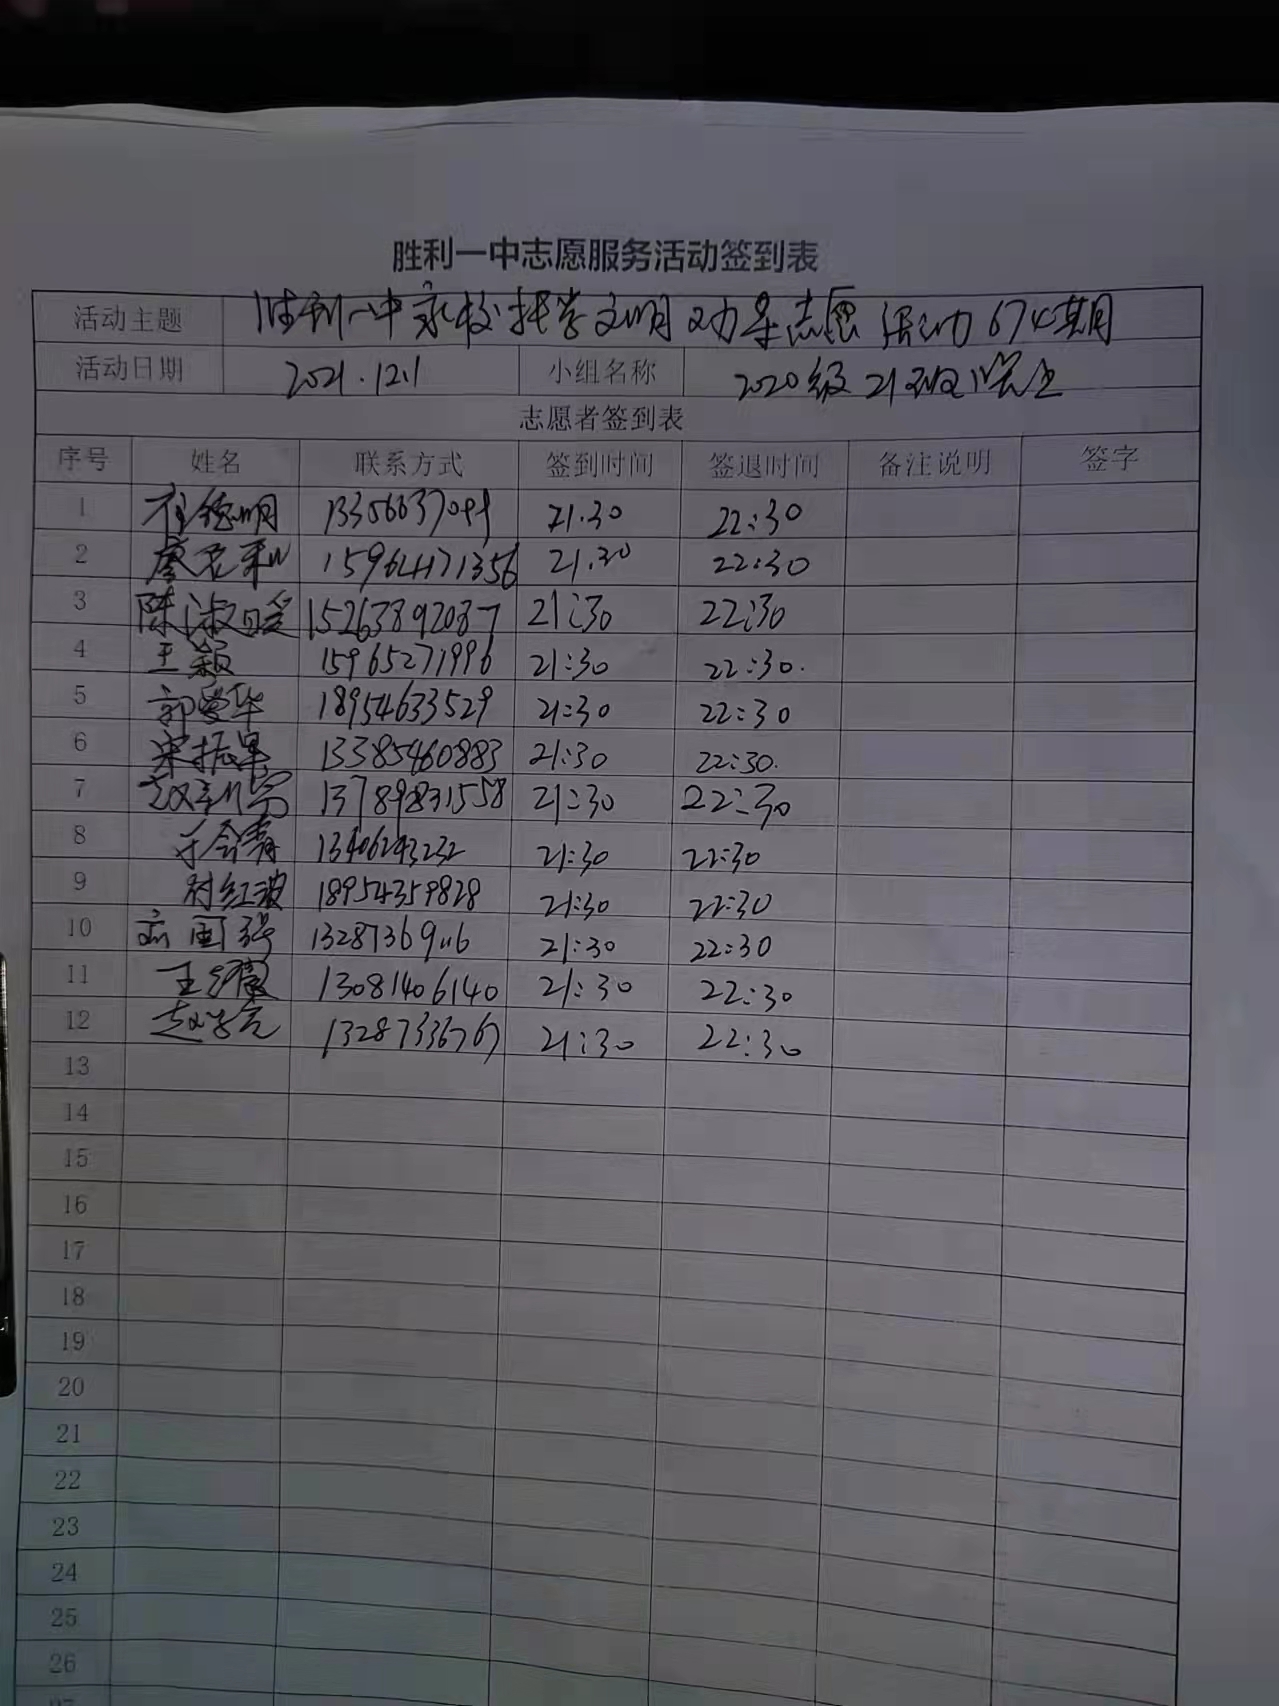 胜利一中志愿服务活动签到表
活动主题 胜利一中家校共营文明 志愿活动674期
活动日期 2021.12.1 小组名称 2020级21班
志愿者签到表
序号 姓名 联系方式 签到时间 签退时间 备注说明 签字
1 德明 21.30 22:30
2 廖 15964171356 21.30 22:30
3 陈淑暖 15263892087 21:30 22:30
4 王颖 15965271996 21:30 22:30.
5 郭爱华 18954633529 21:30 22:30
6 宋振军 13385460883 21:30 22:30.
7 赵 13789831558 21:30 22:30
8 于会青 13406243232 21:30 22:30
9 付红波 18954359828 21:30 22:30
10 国强 21:30 22:30
11 王 13081406140 21:30 22:30
12 赵 13287336767 21:30 22:30
13
14
15
16
17
18
19
20
21
22
23
24
25
26